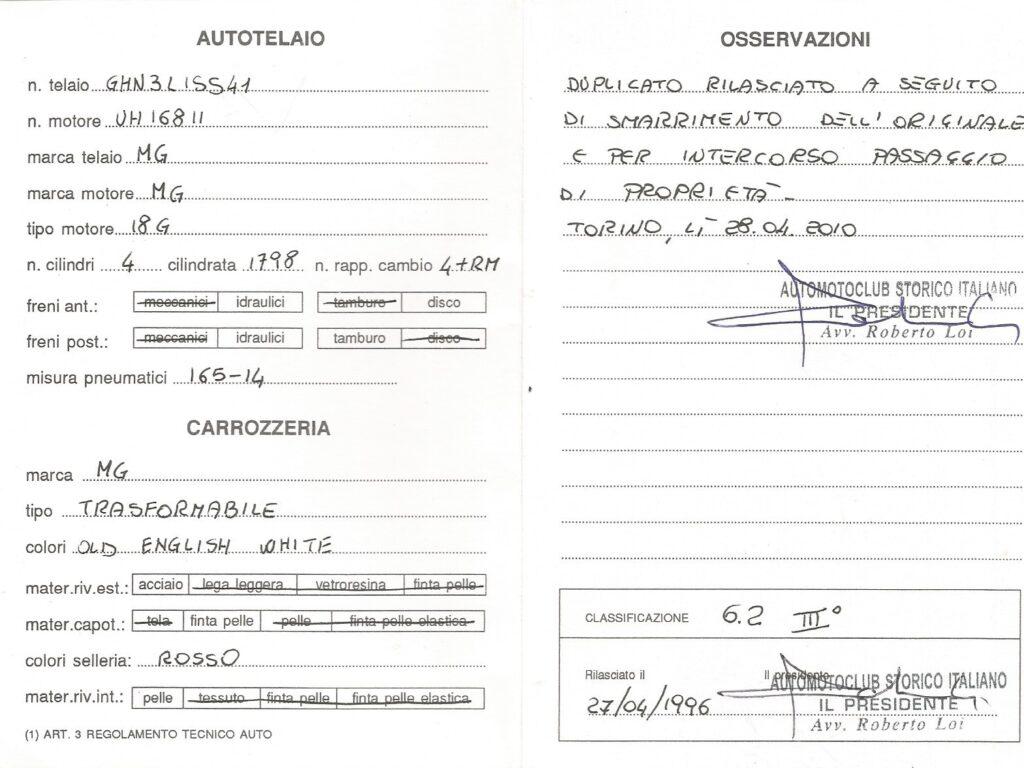 AUTOTELAIO
n. telaio GHN3L15541
n. motore UH16811
marca telaio MG
marca motore MG
tipo motore 18G
n. cilindri 4 cilindrata 1798 n. rapp. cambio 4+RM
freni ant.: meccanici idraulici tamburo disco
freni post.: meccanici idraulici tamburo disco
misura pneumatici 165-14
CARROZZERIA
marca MG
tipo TRASFORMABILE
colori OLD ENGLISH WHITE
mater.riv.est.: acciaio lega leggera vetroresina finta pelle
mater.capot.: tela finta pelle pelle finta pelle elastica
colori selleria: ROSSO
mater.riv.int.: pelle tessuto finta pelle finta pelle elastica
(1) ART. 3 REGOLAMENTO TECNICO AUTO
OSSERVAZIONI
DUPLICATO RILASCIATO A SEGUITO
DI SMARRIMENTO DELL'ORIGINALE
E PER INTERCORSO PASSAGGIO
DI PROPRIETA'
TORINO, LI' 28.04.2010
AUTOMOTOCLUB STORICO ITALIANO
IL PRESIDENTE
Avv. Roberto Loi
CLASSIFICAZIONE 6.2 III°
Rilasciato il Il presidente
27/04/1996
AUTOMOTOCLUB STORICO ITALIANO
IL PRESIDENTE
Avv. Roberto Loi